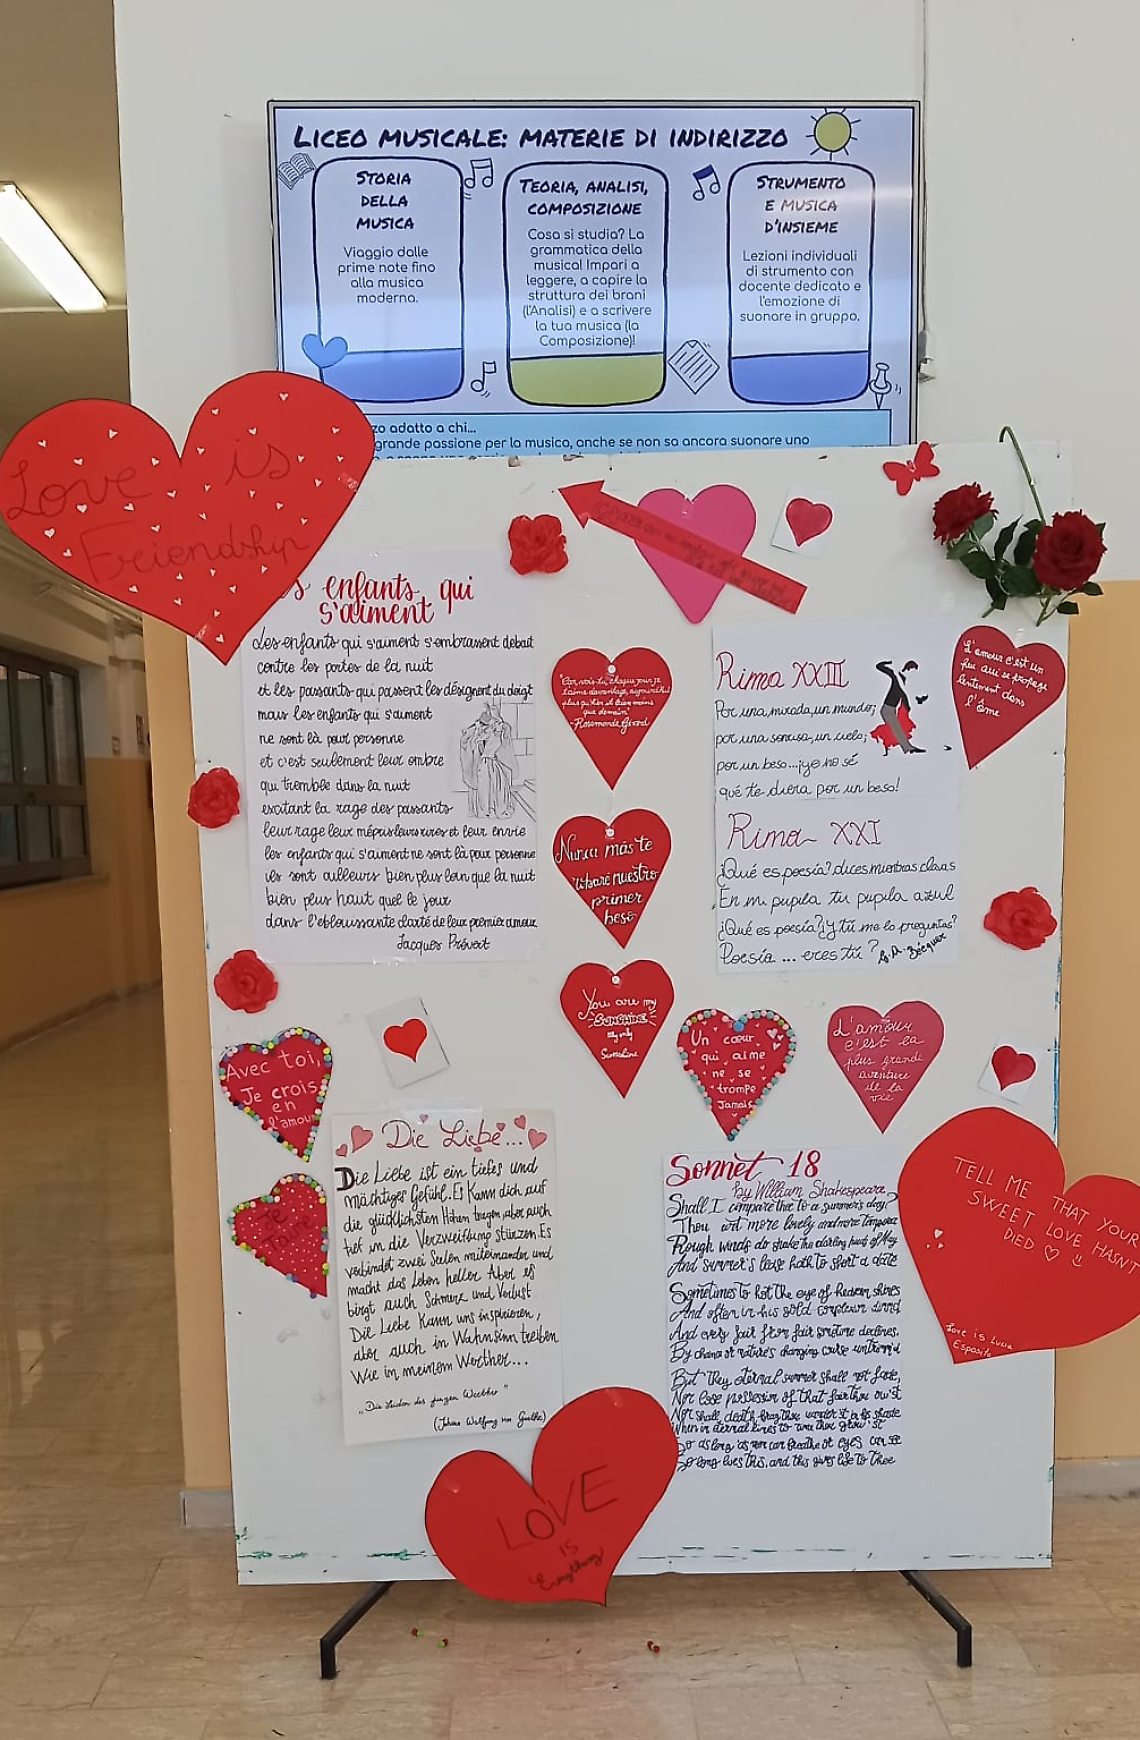 LICEO MUSICALE: MATERIE DI INDIRIZZO
STORIA
DELLA
MUSICA
Viaggio dalle
prime note fino
alla musica
moderna.
TEORIA, ANALISI,
COMPOSIZIONE
Cosa si studia? La
grammatica della
musica! Impari a
leggere, a capire la
struttura dei brani
(l'Analisi) e a scrivere
la tua musica (la
Composizione)!
STRUMENTO
E MUSICA
D'INSIEME
Lezioni individuali
di strumento con
docente dedicato e
l'emozione di
suonare in gruppo.
zo adatto a chi...
grande passione per la musica, anche se non sa ancora suonare uno
Love is
Friendship
s enfants qui
s'aiment
Les enfants qui s'aiment s'embrassent debout
contre les portes de la nuit
et les passants qui passent les désignent du doigt
mais les enfants qui s'aiment
ne sont là pour personne
et c'est seulement leur ombre
qui tremble dans la nuit
excitant la rage des passants
leur rage leur mépris leurs rires et leur envie
les enfants qui s'aiment ne sont là pour personne
ils sont ailleurs bien plus loin que la nuit
bien plus haut que le jour
dans l'éblouissante clarté de leur premier amour
Jacques Prévert
"Car, vois-tu, chaque jour je
t'aime davantage, aujourd'hui
plus qu'hier et bien moins
que demain"
-Rosemonde Gérard
Nunca más te
nuestro
primer
beso
You are my
SUNSHINE
my only
Sunshine
Rima XXIII
Por una mirada, un mundo;
por una sonrisa, un cielo;
por un beso...¡yo no sé
qué te diera por un beso!
Rima XXI
¿Qué es poesía? dices mientras clavas
En mi pupila tu pupila azul
¿Qué es poesía? ¿Y tú me lo preguntas?
Poesía ... eres tú?
G.A. Bécquer
L'amour c'est un
feu qui se propage
lentement dans
l'âme
Un cœur
qui aime
ne se
trompe
Jamais
L'amour
c'est la
plus grande
aventure
de la
vie
Avec toi,
Je crois
en
l'amour
Je
Die Liebe...
Die Liebe ist ein tiefes und
mächtiges Gefühl. Es kann dich auf
die glücklichsten Höhen tragen, aber auch
tief in die Verzweiflung stürzen. Es
verbindet zwei Seelen miteinander und
macht das Leben heller. Aber es
birgt auch Schmerz und Verlust.
Die Liebe kann uns inspirieren,
aber auch in Wahnsinn treiben
Wie in meinem Werther...
"Die Leiden des jungen Werther"
(Johann Wolfgang von Goethe)
Sonnet 18
by William Shakespeare
Shall I compare thee to a summer's day?
Thou art more lovely and more
Rough winds do shake the darling buds of May
And summer's lease hath to short a date
Sometimes to hot the eye of heaven shines
And often in his gold complexion
And every fair from fair sometime declines,
By chance or nature's changing course untrimm'd
But thy eternal summer shall not fade,
Nor lose possession of that fair thou ow'st
Nor shall death brag thou wander'st in his shade
When in eternal lines to time thou grow'st
So as long as men can breathe or eyes can see
So long lives this, and this gives life to thee
TELL ME THAT YOUR
SWEET LOVE HASN'T
DIED
Love is Lucia
Esposito
LOVE
IS
Everything